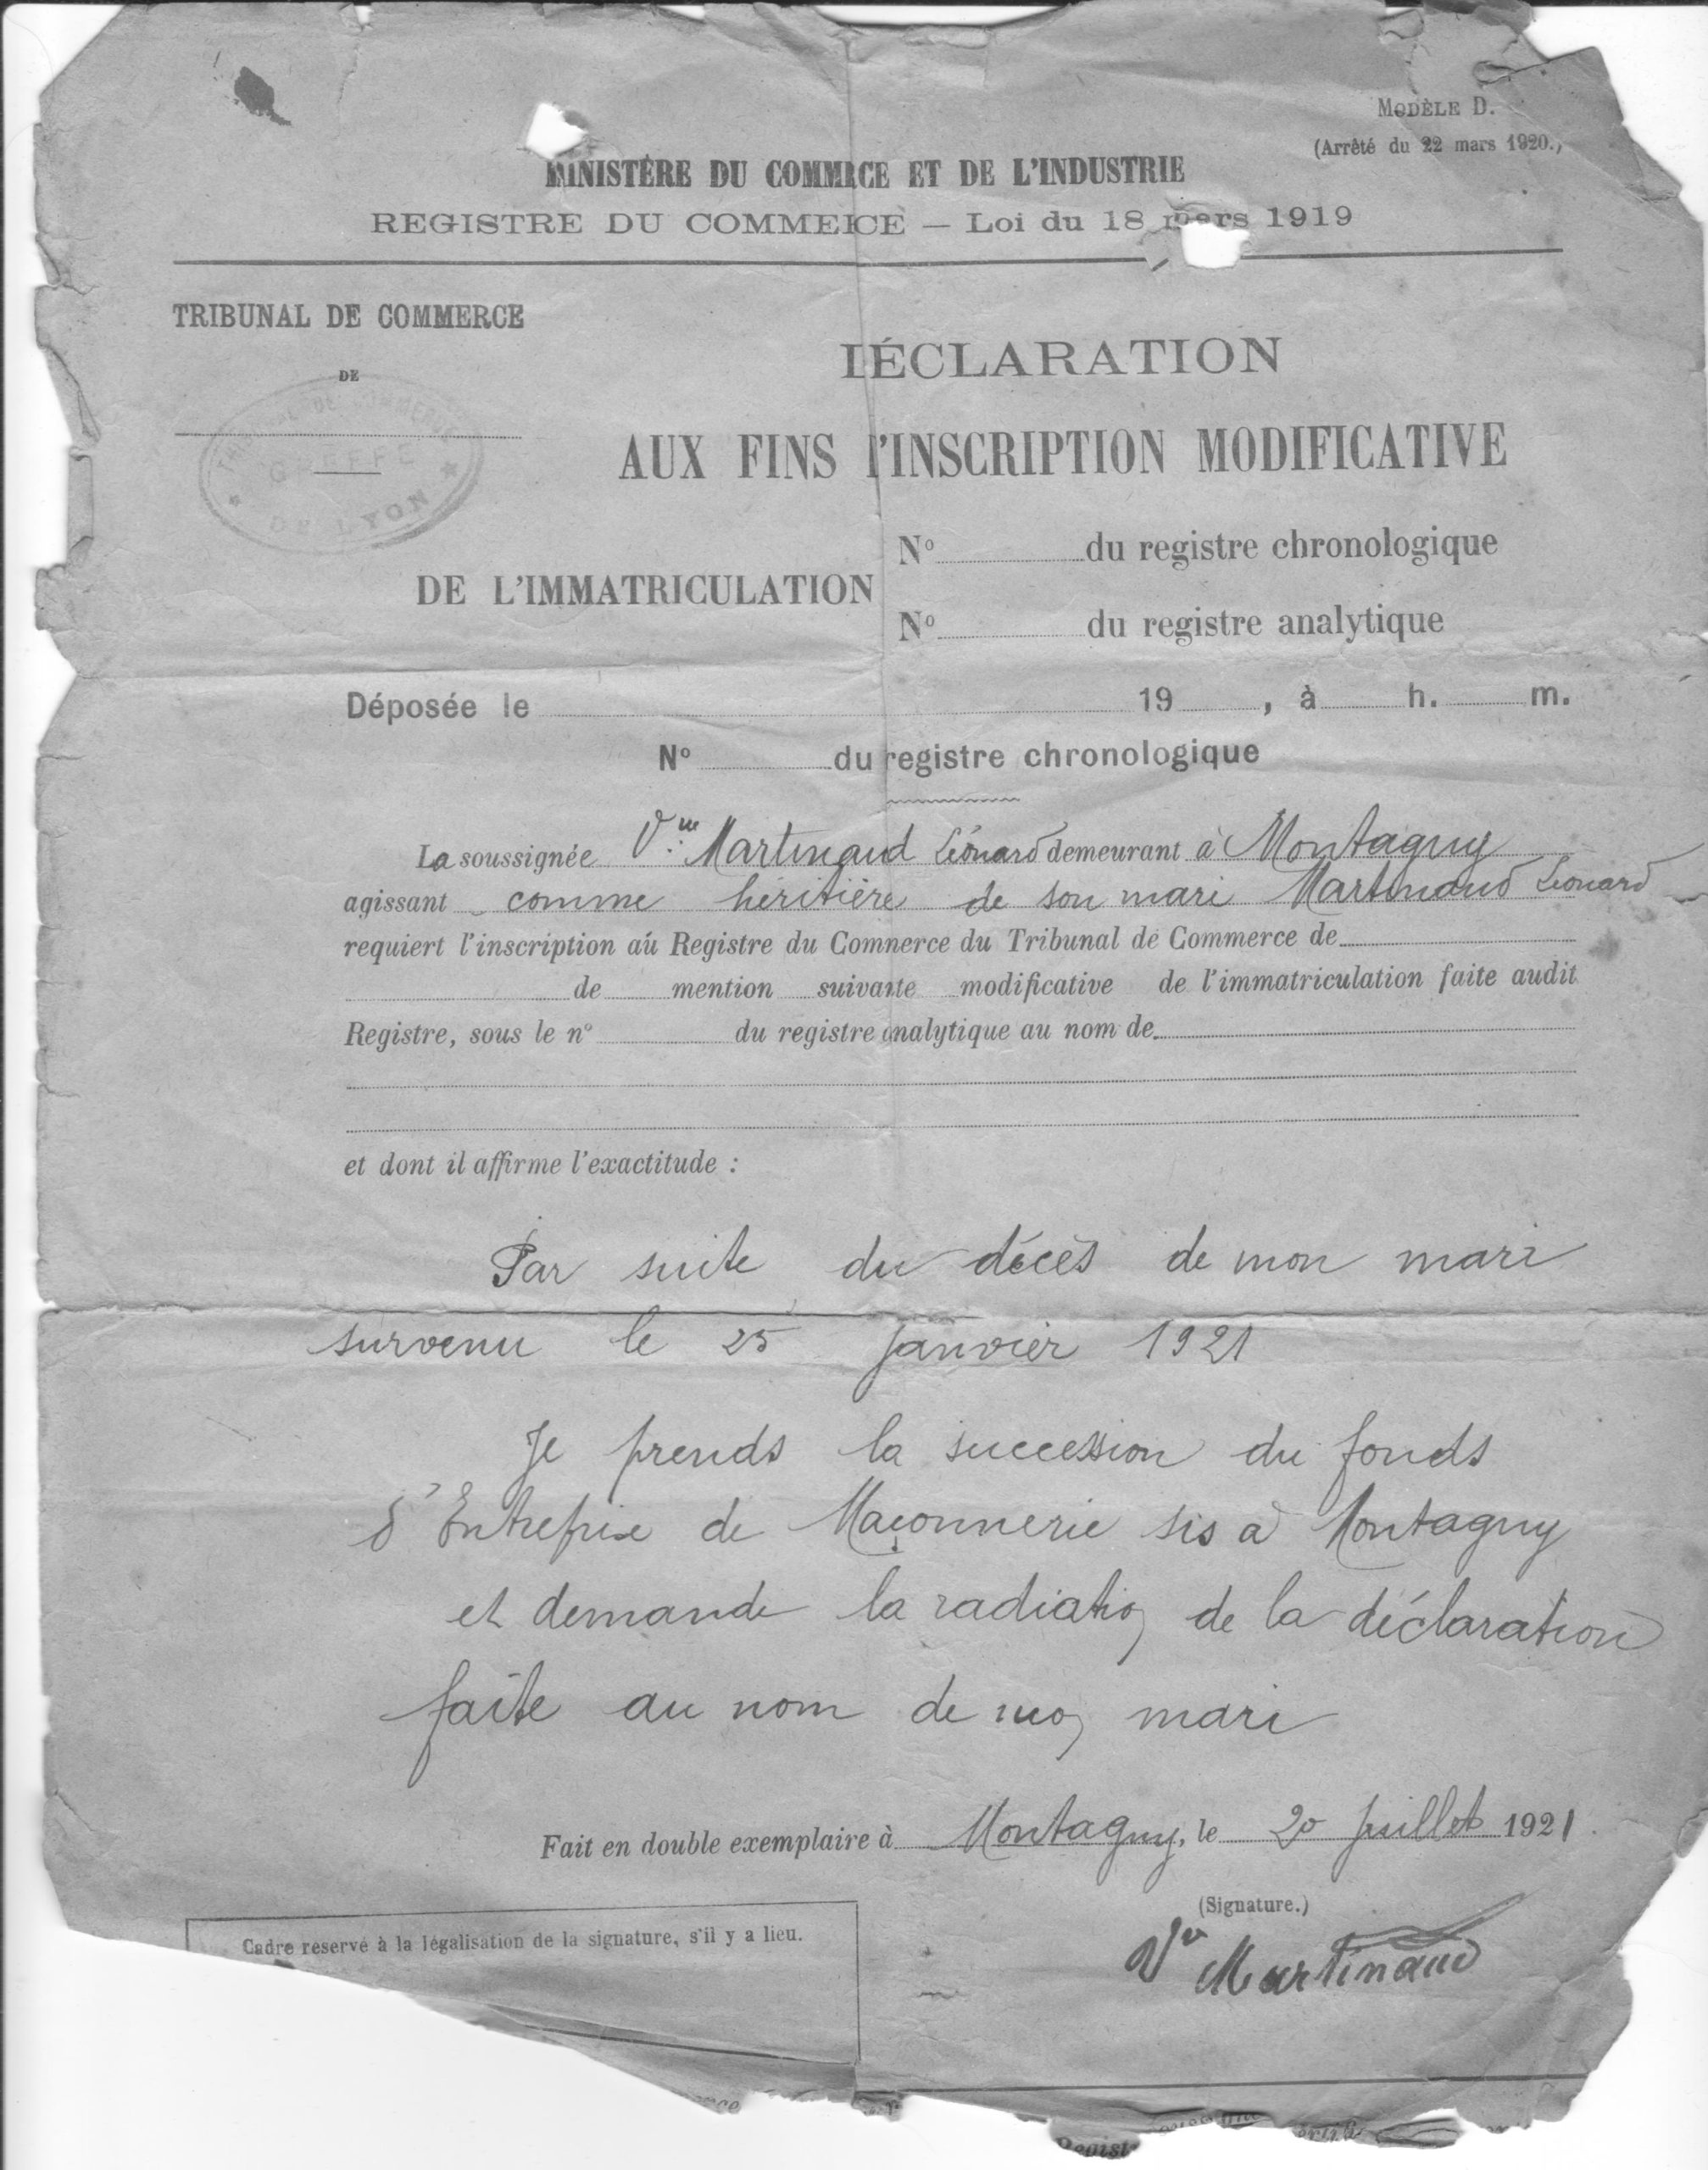 MODÈLE D.
(Arrêté du 22 mars 1920.)
MINISTÈRE DU COMMERCE ET DE L'INDUSTRIE
REGISTRE DU COMMERCE — Loi du 18 mars 1919
TRIBUNAL DE COMMERCE
DE
TRIBUNAL DE COMMERCE
GREFFE
DE LYON
DÉCLARATION
AUX FINS D'INSCRIPTION MODIFICATIVE
DE L'IMMATRICULATION
N° du registre chronologique
N° du registre analytique
Déposée le 19 , à h. m.
N° du registre chronologique
La soussignée Vve Martinaud Léonard demeurant à Montagny
agissant comme héritière de son mari Martinaud Léonard
requiert l'inscription au Registre du Commerce du Tribunal de Commerce de
de mention suivante modificative de l'immatriculation faite audit
Registre, sous le n° du registre analytique au nom de
et dont il affirme l'exactitude :
Par suite du décès de mon mari
survenu le 25 janvier 1921
Je prends la succession du fonds
d'Entreprise de Maçonnerie sis à Montagny
et demande la radiation de la déclaration
faite au nom de mon mari
Fait en double exemplaire à Montagny, le 20 juillet 1921
(Signature.)
Vve Martinaud
Cadre réservé à la légalisation de la signature, s'il y a lieu.